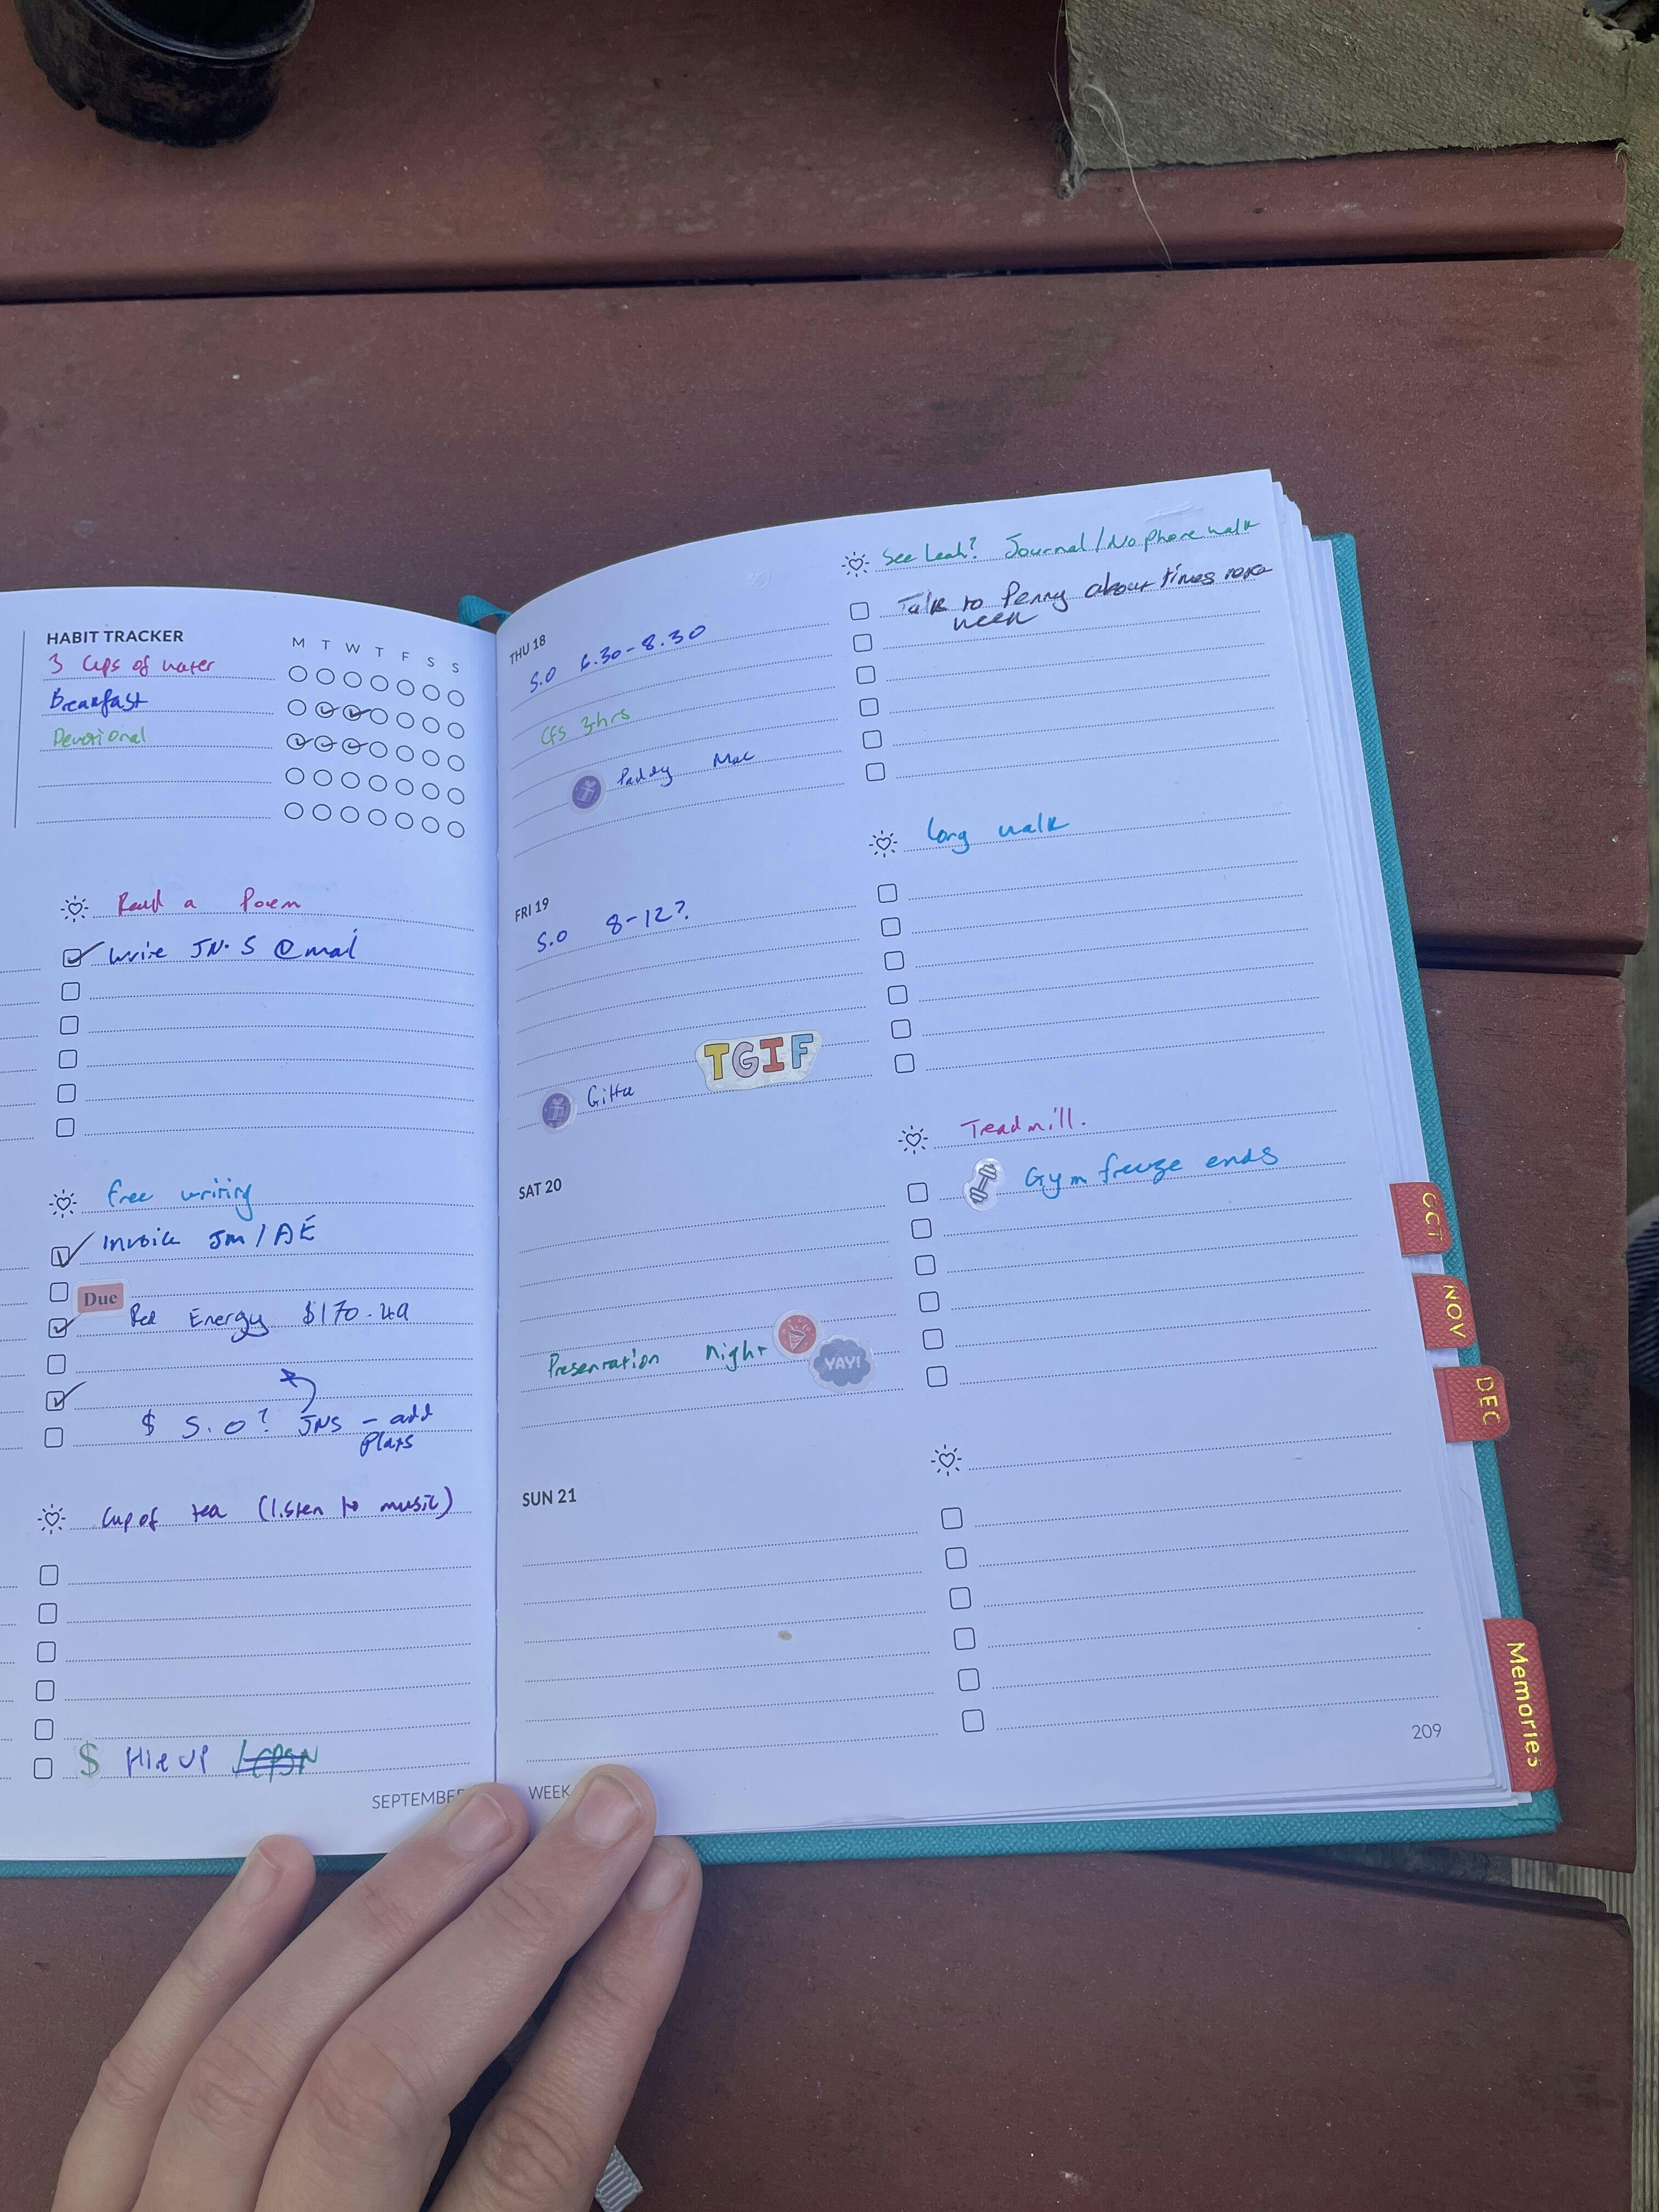 HABIT TRACKER
M T W T F S S
3 cups of water
Breakfast
Devotional
Read a Poem
Write JN.S @mail
free writing
Invoice JM / AE
Due
Red Energy $170.49
$ S.O? JNS - add
Cup of tea (listen to music)
$ UP
SEPTEMBE
THU 18
S.O 6.30-8.30
Cfs 3hrs
Paddy Mac
See Leah? Journal/No phone walk
Talk to Penny about times
week
FRI 19
S.O 8-12?
TGIF
Gitta
Long walk
SAT 20
Presentation night
YAY!
Treadmill.
Gym freeze ends
SUN 21
WEEK
209
OCT
NOV
DEC
Memories